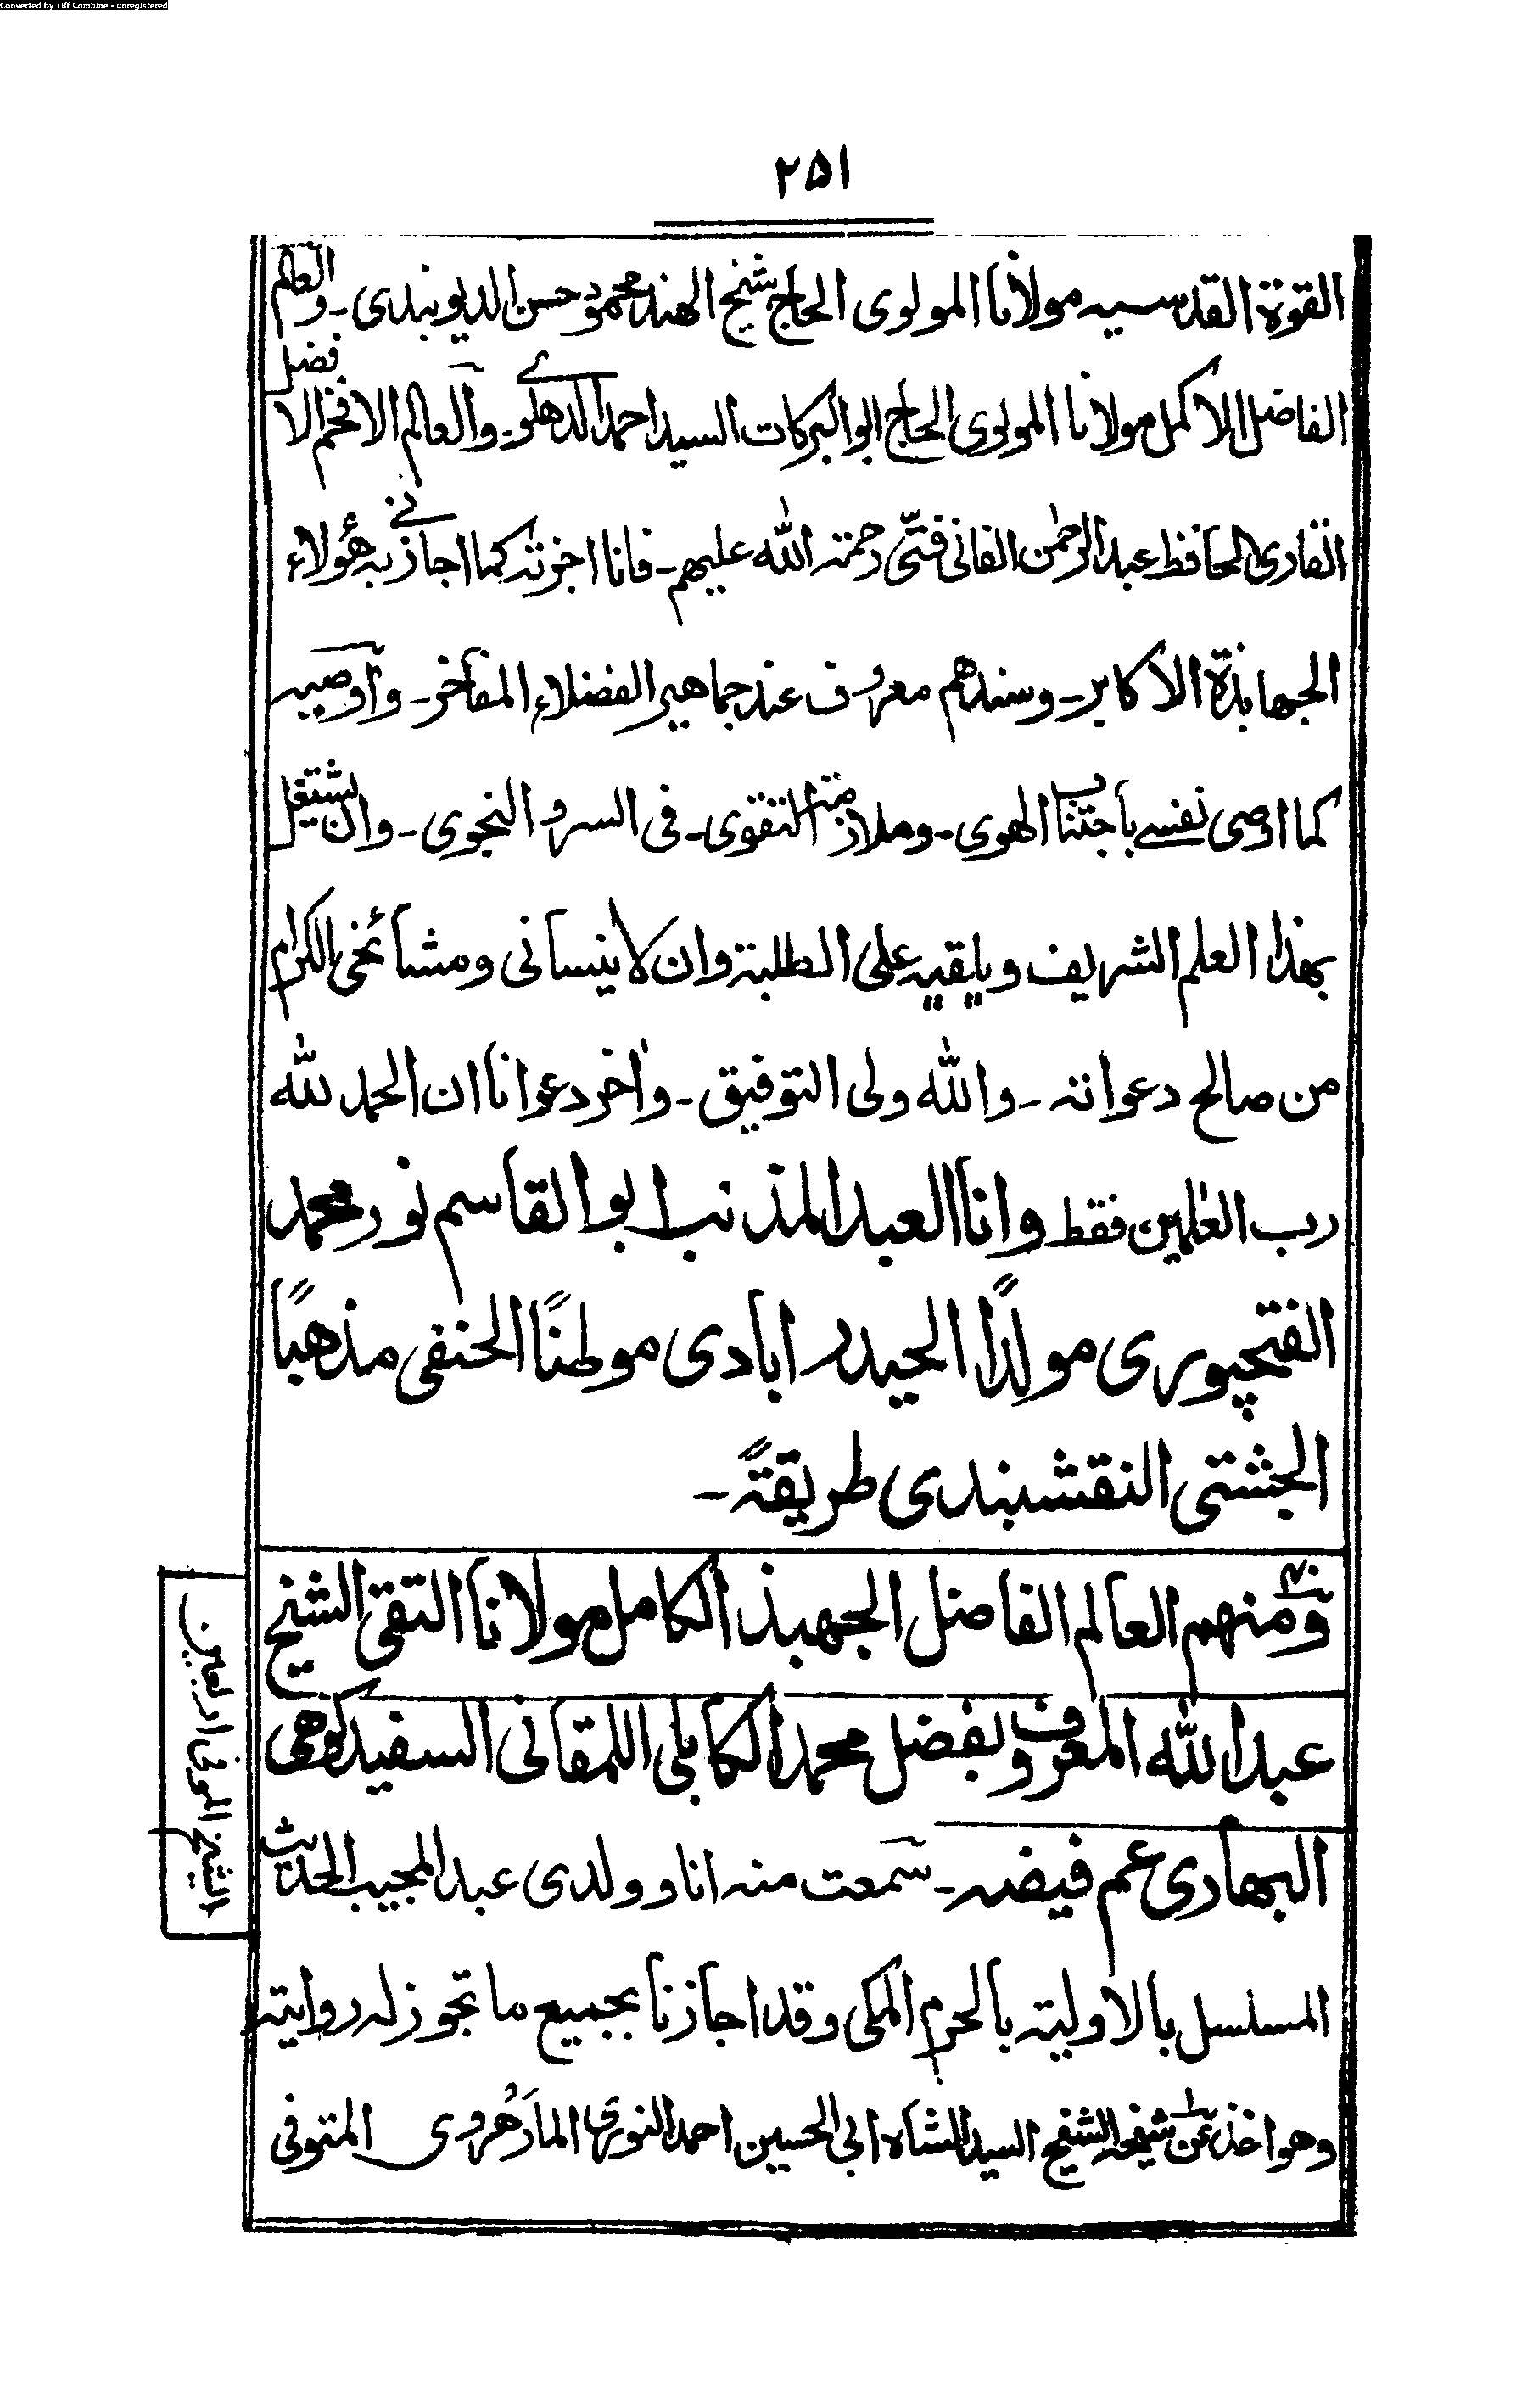 Converted by Tiff Combine - unregistered
۲۵۱
القوة القدسیه مولانا المولوی الحاج شیخ الهند محمود حسن الدیوبندی۔ والعالم
الفاضل الاکمل مولانا المولوی الحاج ابوالبرکات السید احمد الدهلوے۔ والعالم الافخم الافضل
القاری الحافظ عبدالرحمٰن الفانی فتی رحمۃ اللّٰه علیهم۔ فانا اجزته کما اجازنے به هٰؤلاء
الجهابذة الاکابر۔ وسندهم معروف عند جماهیر الفضلاء المفاخر۔ واوصیه
کما اوصی نفسے باجتناب الهوی۔ وملازمة التقوی۔ فی السر و النجوی۔ وان یشتغل
بهذا العلم الشریف ویلقیه علی الطلبة وان لا ینسانی ومشائخی الکرام
من صالح دعواته۔ والله ولی التوفیق۔ واٰخر دعوانا ان الحمد لله
رب العٰلمین فقط وانا العبد المذنب ابو القاسم نور محمد
الفتحپوری مولدًا الحیدر ابادی موطنًا الحنفی مذهبًا
الجشتی النقشبندی طریقةً۔
ومنهم العالم الفاضل الجهبذ الکامل مولانا التقی الشیخ
عبدالله المعروف بفضل محمد الکابلی اللمقانی السفید کوهی
البهاری عم فیضه۔ سمعت منه انا و ولدی عبدالمجیب الحدیث
المسلسل بالاولیة بالحرم المکی وقد اجازنا بجمیع ما تجوز له روایته
وهو اخذ عن شیخه الشفیع السید الشاه ابی الحسین احمد النوری المارَهروی المتوفی
الشیخ الموفی اربعین